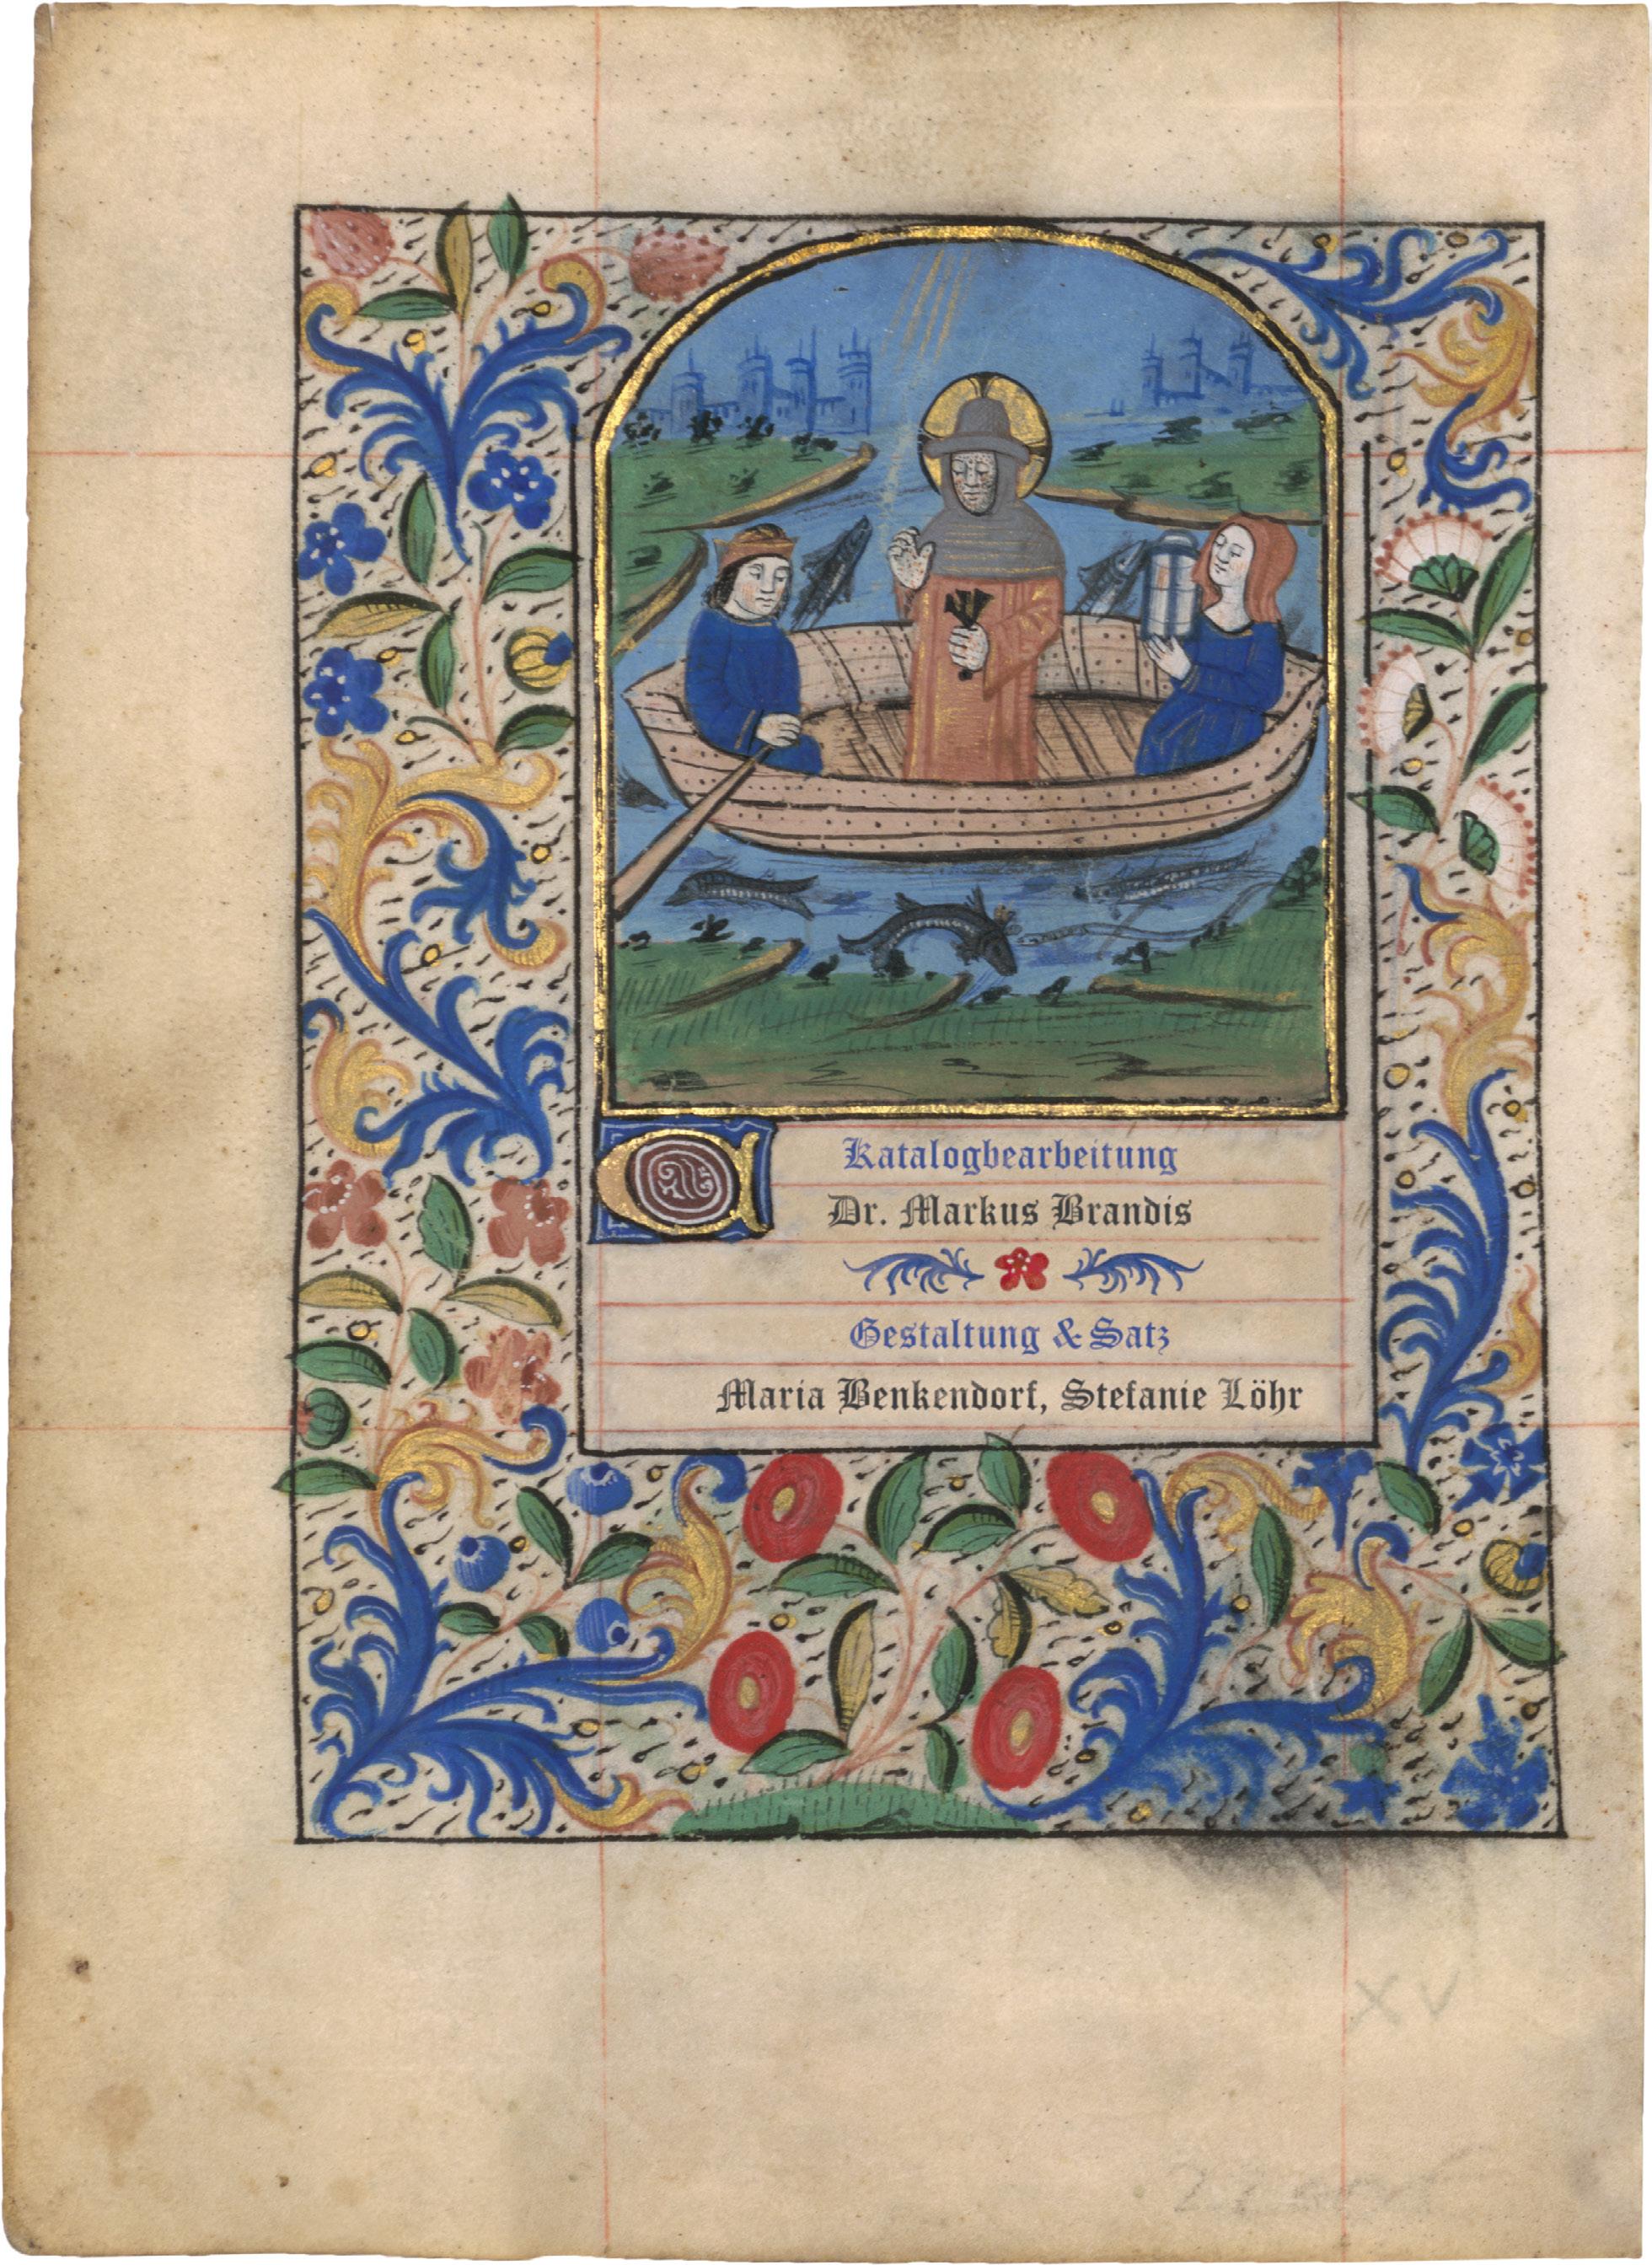 Katalogbearbeitung
Dr. Markus Brandis
Gestaltung & Satz
Maria Benkendorf, Stefanie Löhr
XV